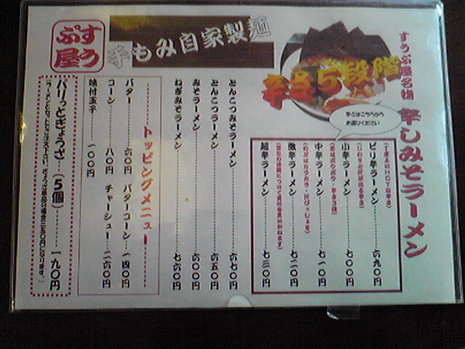 すうぷ屋
手もみ自家製麺
すうぷ屋名物 辛しみそラーメン
辛さ5段階
辛さはこちらから
お選びください
ピリ辛ラーメン 六九〇円
小辛ラーメン 七〇〇円
中辛ラーメン 七一〇円
激辛ラーメン 七二〇円
超辛ラーメン 七三〇円
とんこつみそラーメン 六七〇円
とんこつラーメン 六五〇円
みそラーメン 六〇〇円
ねぎみそラーメン 七六〇円
トッピングメニュー
バター 六〇円 バターコーン 一四〇円
コーン 八〇円 チャーシュー 二六〇円
味付玉子 一〇〇円
パリーっとぎょうざ (5個) 一九〇円